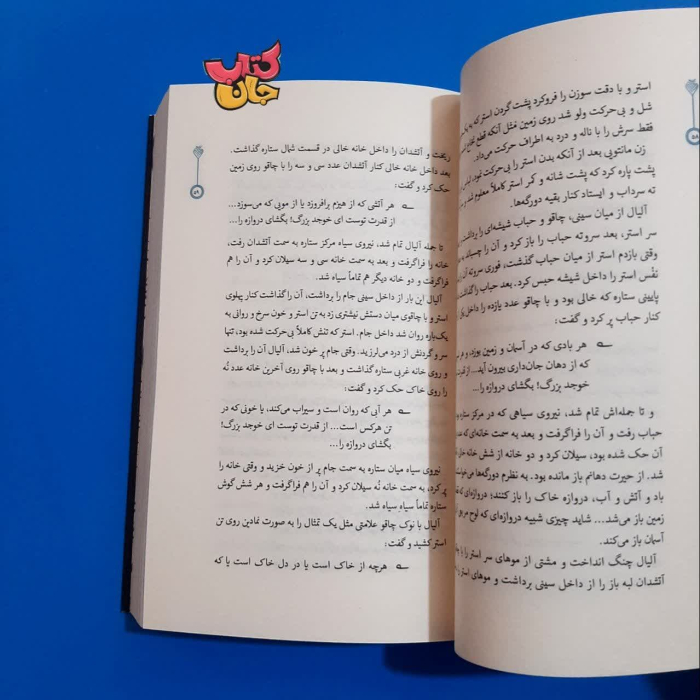 کتاب
جان
استر و با دقت سوزن را فروکرد پشت گردن استر که به یک
شل و بی‌حرکت ولو شد روی زمین مثل آنکه قطع نخاع
فقط سرش را با ناله و درد به اطراف حرکت می‌داد.
زن مانتویی بعد از آنکه بدن استر را بی‌حرکت نمود، لباس
پشت پاره کرد که پشت شانه و کمر استر کاملاً معلوم شد و
ته سرداب و ایستاد کنار بقیه دورگه‌ها.
آلیال از میان سینی، چاقو و حباب شیشه‌ای را برداشت
سر استر، بعد سروته حباب را باز کرد و آن را چسباند
وقتی بازدم استر از میان حباب گذشت، فوری سروته آن
نفْس استر را داخل شیشه حبس کرد. بعد حباب را گذاشت
پایینی ستاره که خالی بود و با چاقو عدد یازده را داخل
کنار حباب پر کرد و گفت:
هر بادی که در آسمان و زمین بوزد، و هر
که از دهان جان‌داری بیرون آید... از قدرت
خوجد بزرگ! بگشای دروازه را...
و تا جمله‌اش تمام شد، نیروی سیاهی که در مرکز ستاره
حباب رفت و آن را فراگرفت و بعد به سمت خانه‌ای که عدد
آن حک شده بود، سیلان کرد و دو خانه از شش خانه
شد. از حیرت دهانم باز مانده بود. به نظرم دورگه‌ها
باد و آتش و آب، دروازه خاک را باز کنند؛ دروازه‌ای که
زمین باز می‌شد... شاید چیزی شبیه دروازه‌ای که لوح
آسمان باز می‌کند.
آلیال چنگ انداخت و مشتی از موهای سر استر را با
آتشدان لبه باز را از داخل سینی برداشت و موهای استر را
۵۹
ریخت و آتشدان را داخل خانه خالی در قسمت شمال ستاره گذاشت.
بعد داخل خانه خالی کنار آتشدان عدد سی و سه را با چاقو روی زمین
حک کرد و گفت:
هر آتشی که از هیزم برافروزد یا از مویی که می‌سوزد...
از قدرت توست ای خوجد بزرگ! بگشای دروازه را...
تا جمله آلیال تمام شد، نیروی سیاه مرکز ستاره به سمت آتشدان رفت،
خانه را فراگرفت و بعد به سمت خانه سی و سه سیلان کرد و آن را هم
فراگرفت و دو خانه دیگر هم تماماً سیاه شد.
آلیال این بار از داخل سینی جام را برداشت، آن را گذاشت کنار پهلوی
استر و با چاقوی میان دستش نیشتری زد به تن استر و خون سرخ و روانی به
یک‌باره روان شد داخل جام. استر که تنش کاملاً بی‌حرکت شده بود، تنها
سر و گردنش از درد می‌لرزید. وقتی جام پر خون شد، آلیال آن را برداشت
و روی خانه غربی ستاره گذاشت و بعد با چاقو روی آخرین خانه عدد نُه
را روی خاک حک کرد و گفت:
هر آبی که روان است و سیراب می‌کند، یا خونی که در
تن هرکس است... از قدرت توست ای خوجد بزرگ!
بگشای دروازه را...
نیروی سیاه میان ستاره به سمت جام پر از خون خزید و وقتی خانه را
پر کرد، به سمت خانه نُه سیلان کرد و آن را هم فراگرفت و هر شش گوش
ستاره تماماً سیاه سیاه شد.
آلیال با نوک چاقو علامتی مثل یک تمثال را به صورت نمادین روی تن
استر کشید و گفت:
هرچه از خاک است یا در دل خاک است یا که